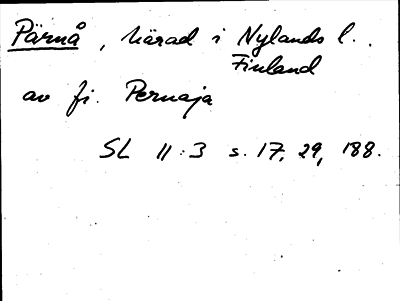 Pärnå, härad i Nylands l..
Finland
av fi. Pernaja
SL 11:3 s. 17, 29, 188.